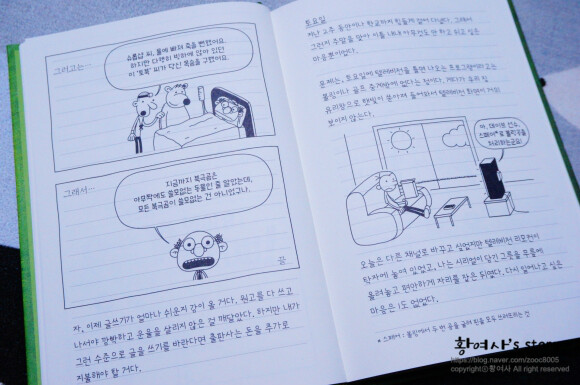 그러고는…
슈롭섭 씨, 물에 빠져 죽을 뻔했어요.
하지만 다행히 빙하에 앉아 있던
이 '툴툴' 씨가 당신 목숨을 구했어요.
그래서…
지금까지 북극곰은
아무짝에도 쓸모없는 동물인 줄 알았는데,
모든 북극곰이 쓸모없는 건 아니었구나.
끝
자, 이제 글쓰기가 얼마나 쉬운지 감이 올 거다. 원고를 다 쓰고
나서야 깜빡하고 운율을 살리지 않은 걸 깨달았다. 하지만 내가
그런 수준으로 글을 쓰기를 바란다면 출판사는 돈을 추가로
지불해야 할 거다.
토요일
지난 2주 동안이나 학교까지 힘들게 걸어 다녔다. 그래서
그런지 주말을 맞아 이틀 내내 아무것도 안 하고 쉬고 싶은
마음뿐이었다.
문제는, 토요일에 텔레비전을 틀면 나오는 프로그램이라고는
볼링이나 골프 중계밖에 없다는 점이다. 게다가 우리 집
유리창으로 햇빛이 쏟아져 들어와서 텔레비전 화면이 거의
보이지 않는다.
아, 데이브 선수,
스페어*로 볼링 공을
처리하는군요!
오늘은 다른 채널로 바꾸고 싶었지만 텔레비전 리모컨이
탁자에 놓여 있었고, 나는 시리얼이 담긴 그릇을 무릎에
올려놓고 편안하게 자리를 잡은 뒤였다. 다시 일어나고 싶은
마음은 1도 없었다.
* 스페어 : 볼링에서 두 번 공을 굴려 핀을 모두 쓰러뜨리는 것
황여사's story
https://blog.naver.com/zooc8005
copyright@황여사 All right reserved